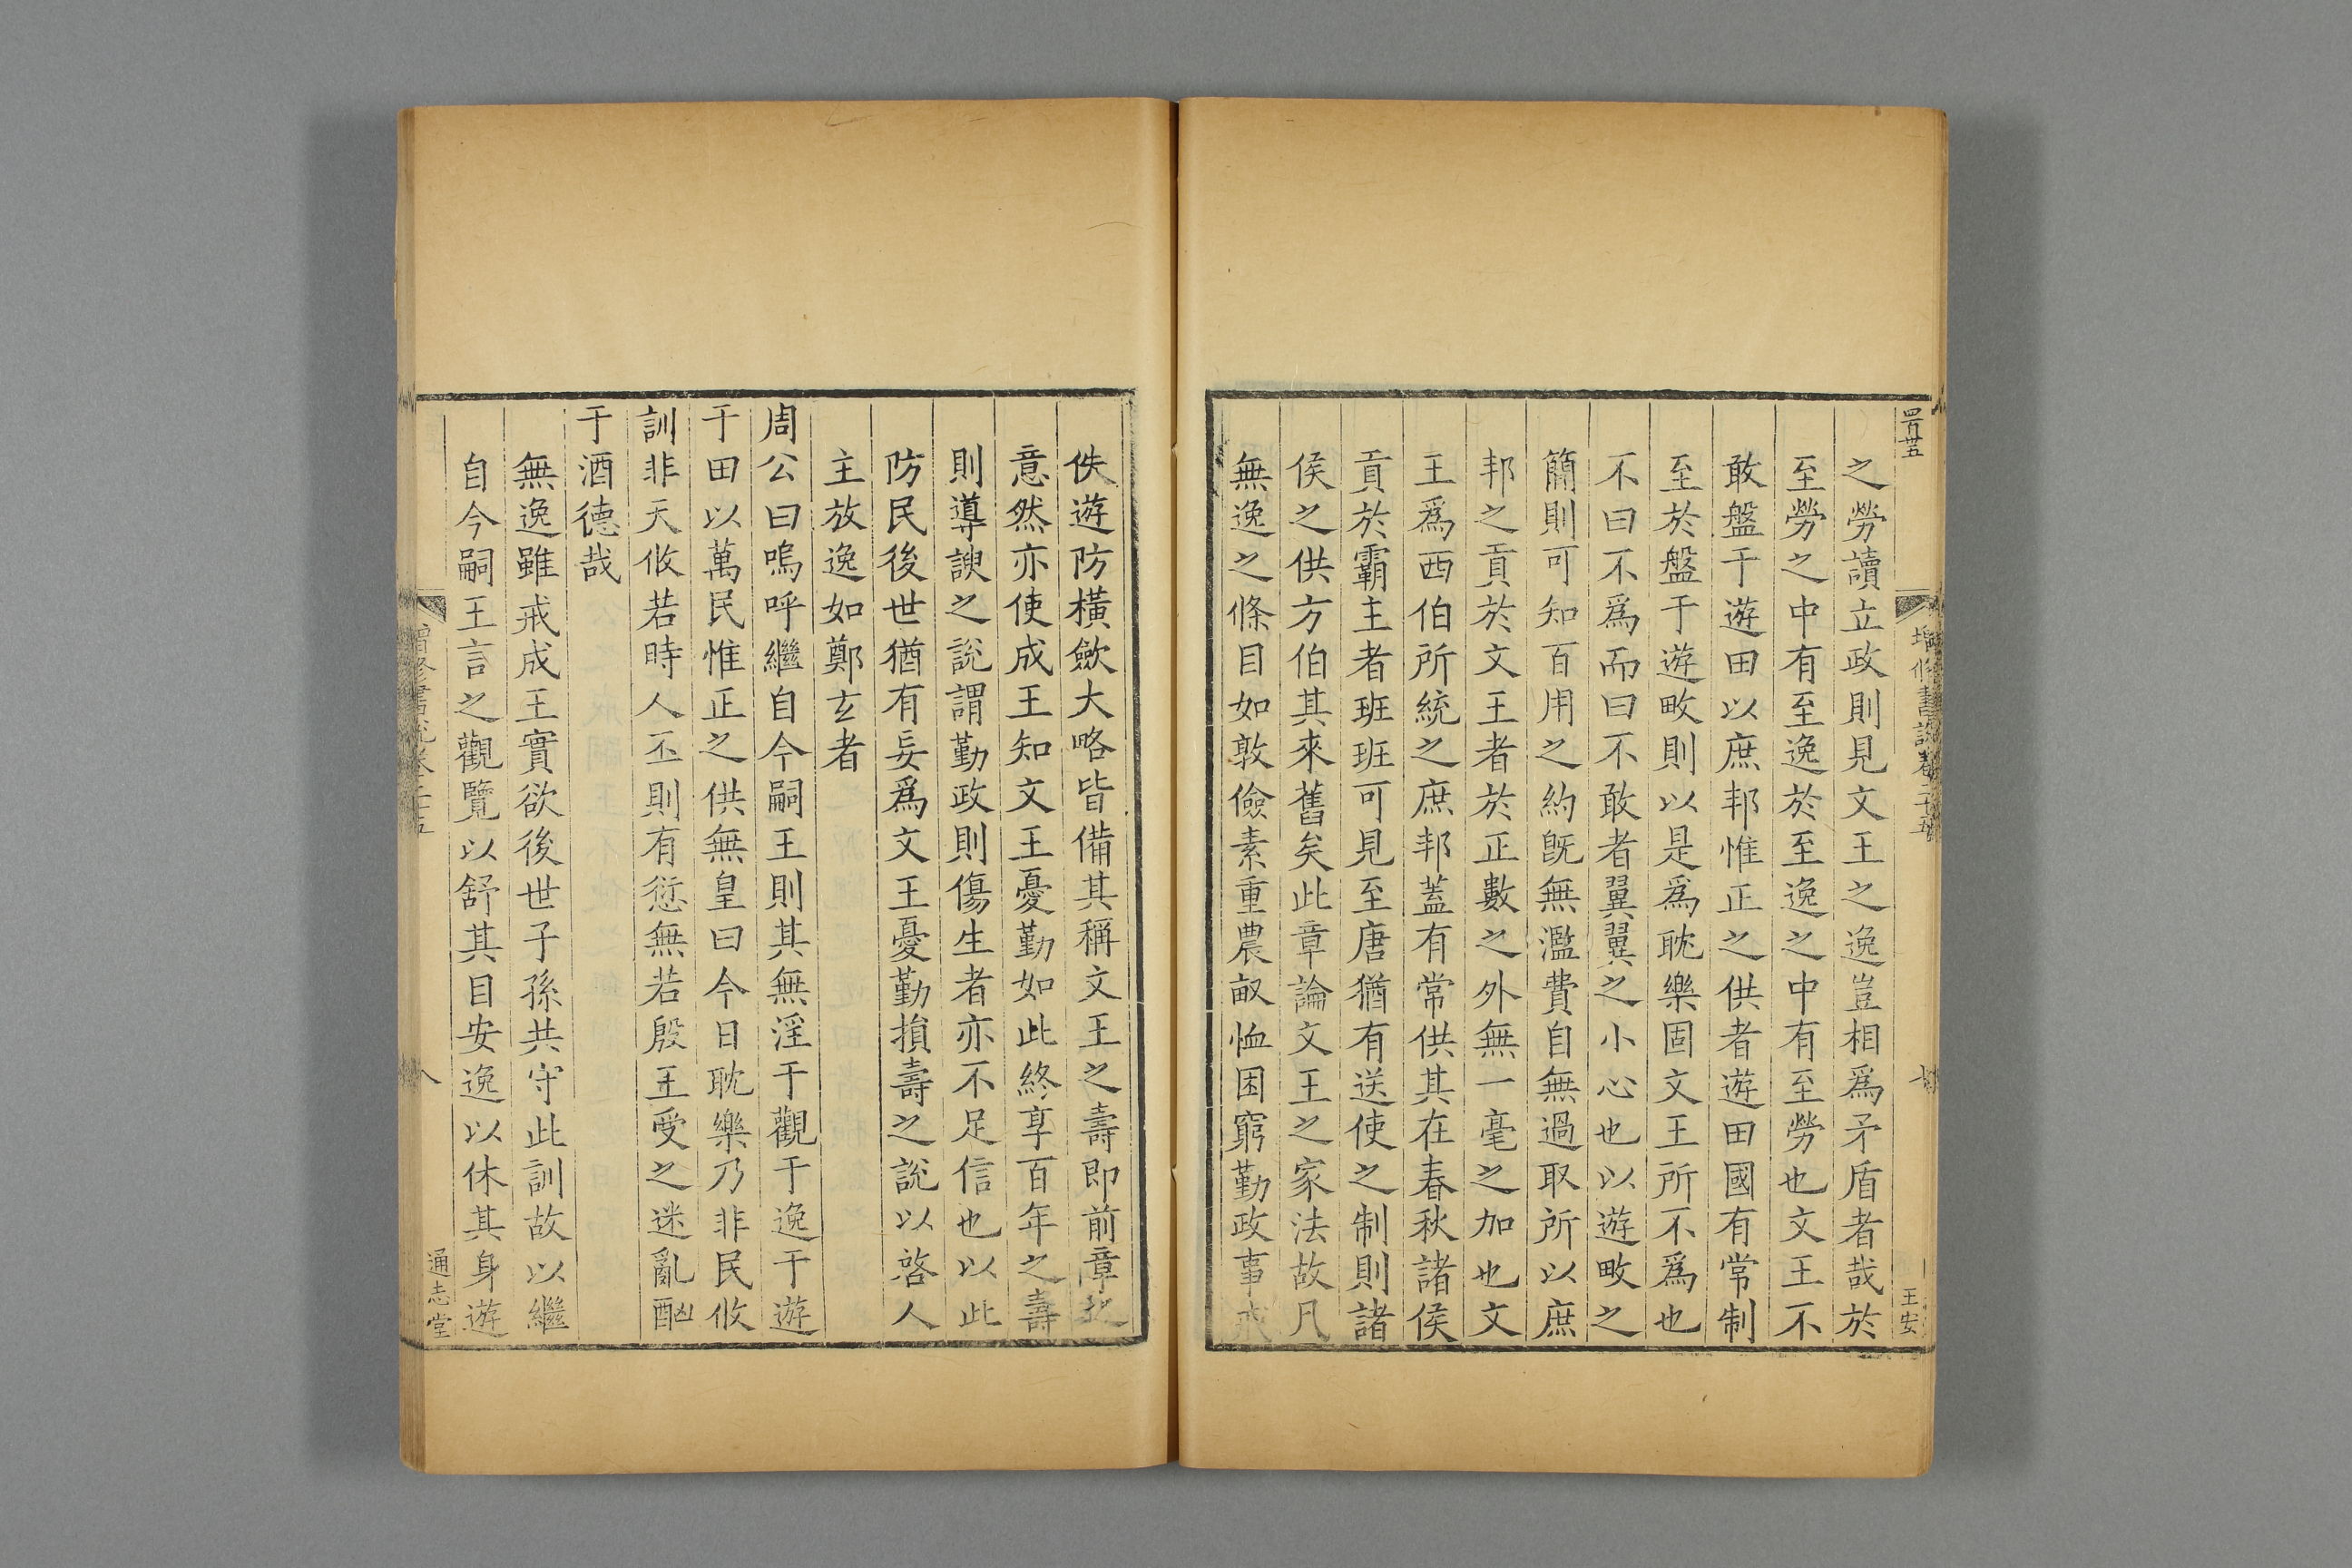 之勞讀立政則見文王之逸豈相爲矛盾者哉於
至勞之中有至逸於至逸之中有至勞也文王不
敢盤于遊田以庶邦惟正之供者遊田國有常制
至於盤于遊畋則以是爲耽樂固文王所不爲也
不曰不爲而曰不敢者翼翼之小心也以遊畋之
簡則可知百用之約旣無濫費自無過取所以庶
邦之貢於文王者於正數之外無一毫之加也文
王爲西伯所統之庶邦蓋有常供其在春秋諸侯
貢於霸主者班班可見至唐猶有送使之制則諸
侯之供方伯其來舊矣此章論文王之家法故凡
無逸之條目如敦儉素重農畝恤困窮勤政事戒
佚遊防橫斂大略皆備其稱文王之壽即前章之
意然亦使成王知文王憂勤如此終享百年之壽
則導諛之說謂勤政則傷生者亦不足信也以此
防民後世猶有妄爲文王憂勤損壽之說以啓人
主放逸如鄭玄者
周公曰嗚呼繼自今嗣王則其無淫于觀于逸于遊
于田以萬民惟正之供無皇曰今日耽樂乃非民攸
訓非天攸若時人丕則有愆無若殷王受之迷亂酗
于酒德哉
無逸雖戒成王實欲後世子孫共守此訓故以繼
自今嗣王言之觀覽以舒其目安逸以休其身遊
增修書說卷二十五
七
王安
增修書說卷二十五
八
通志堂